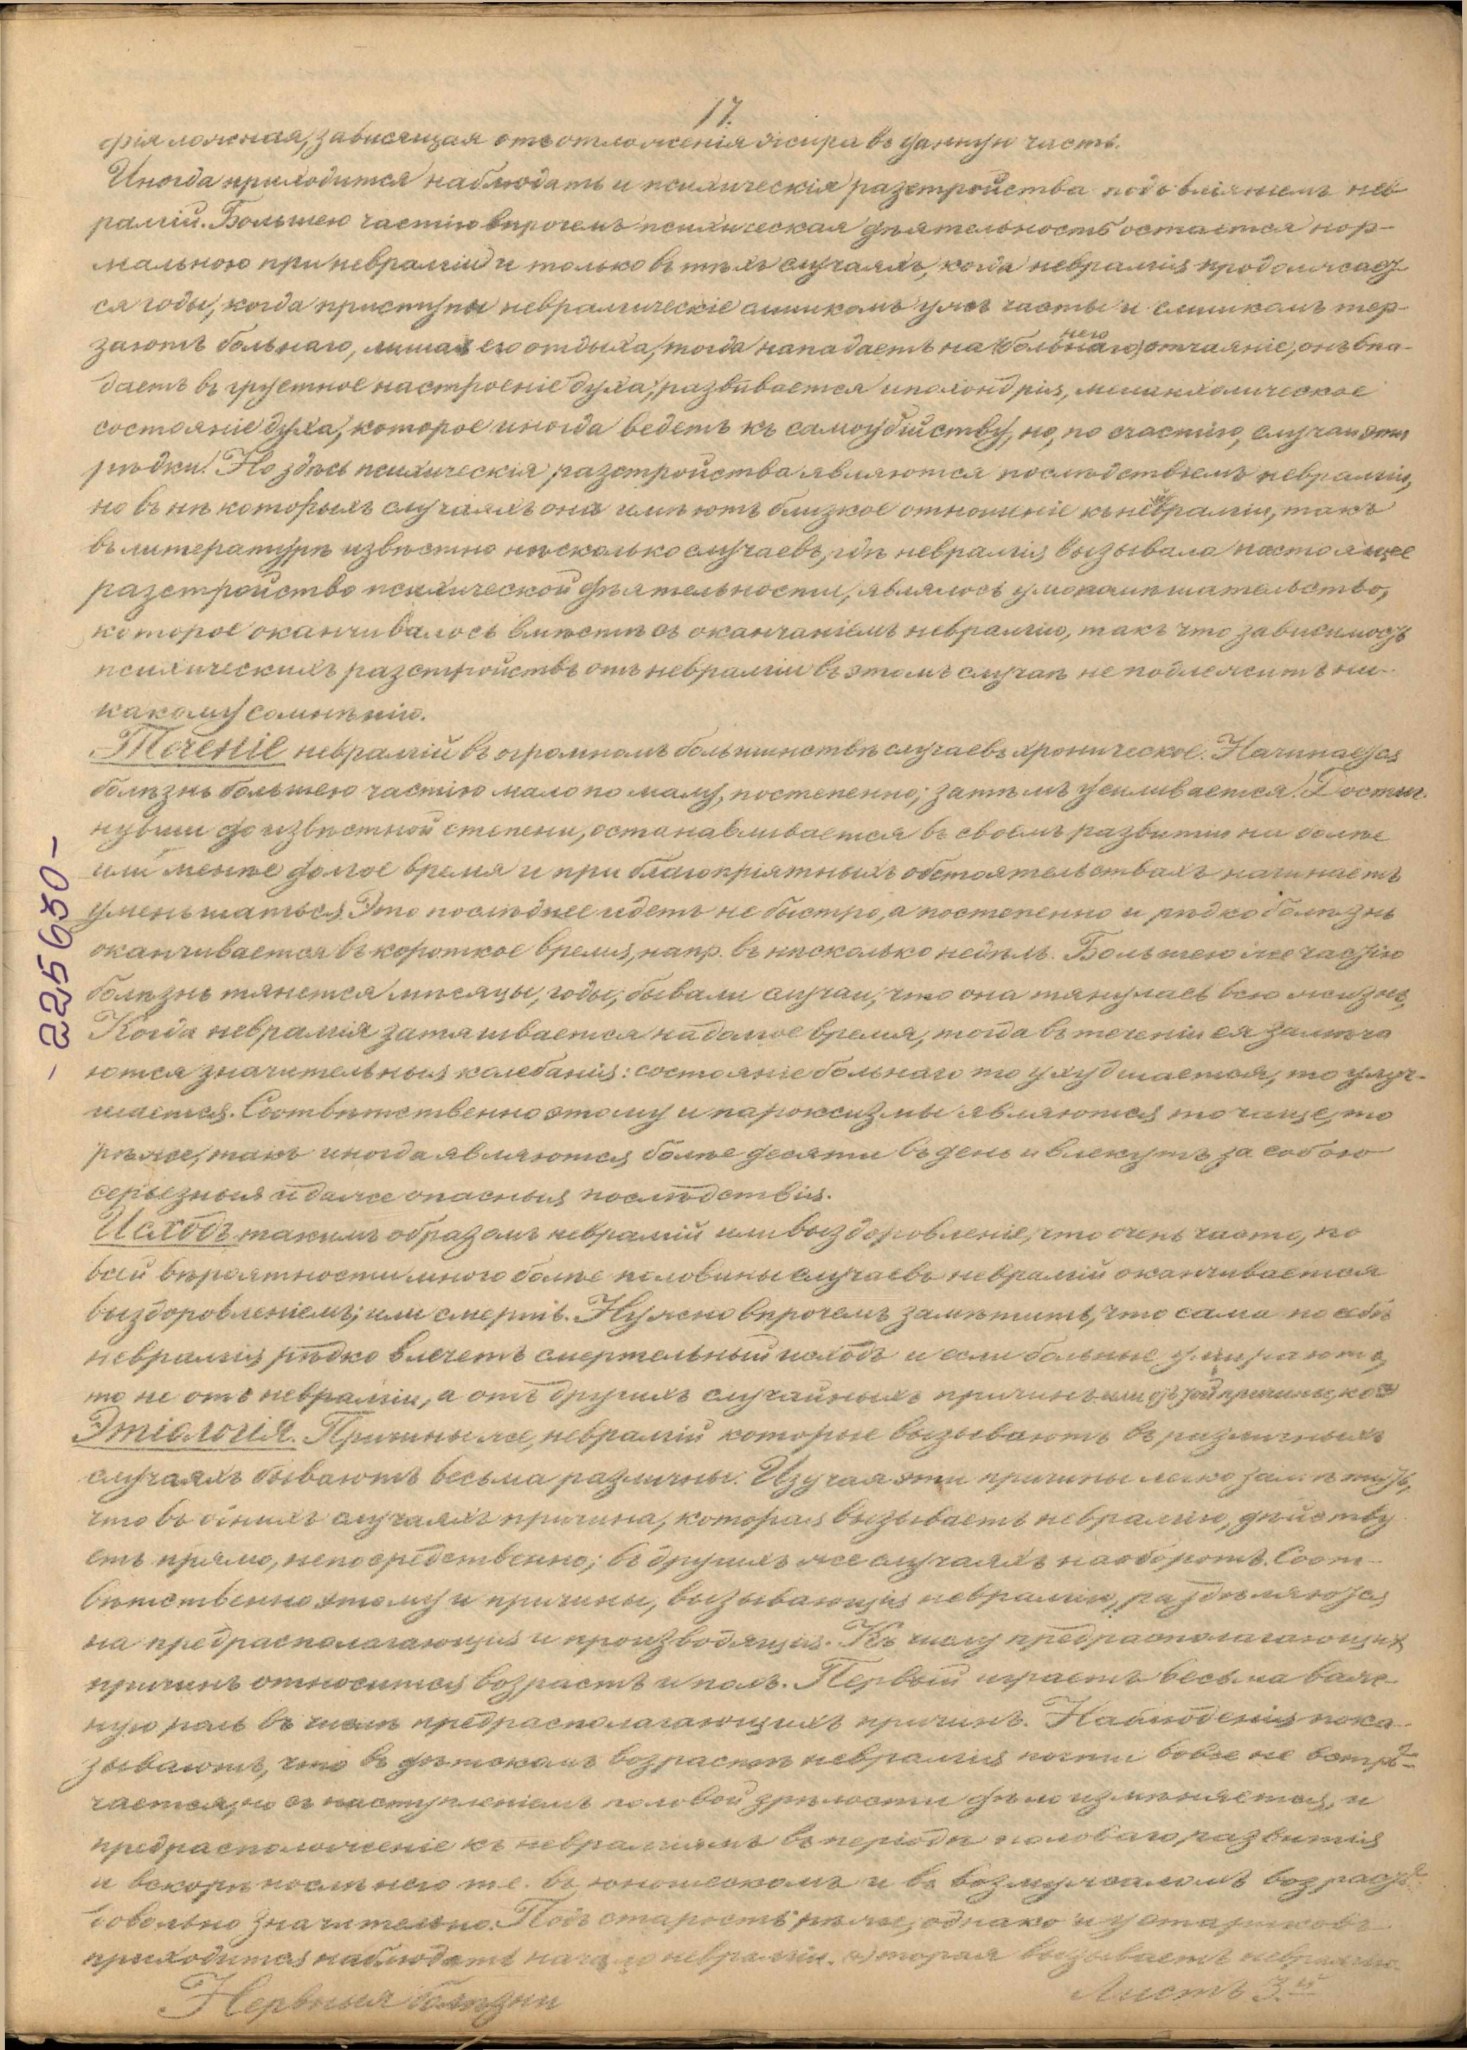 17.
фія ложная, зависящая отъ отложенія жира въ данную часть.
Иногда приходится наблюдать и психическія разстройства подъ вліяніемъ нев
ралгій. Большею частію впрочемъ психическая дѣятельность остается нор-
мальною при невралгіи и только въ тѣхъ случаяхъ, когда невралгія продолжает
ся годы, когда приступы невралгическіе слишкомъ ужъ часты и слишкомъ тер-
заютъ больнаго, лишая его отдыха, тогда нападаетъ на (больнаго) него отчаяніе, онъ впа-
даетъ въ грустное настроеніе духа, развивается ипохондрія, меланхолическое
состояніе духа, которое иногда ведетъ къ самоубійству, но, по счастію, случаи эти
рѣдки. Но здѣсь психическія разстройства являются послѣдствіемъ невралгіи,
но въ нѣкоторыхъ случаяхъ она имѣютъ близкое отношеніе къ невралгіи, такъ
въ литературѣ извѣстно нѣсколько случаевъ, гдѣ невралгія вызывала настоящее
разстройство психической дѣятельности, являлось умопомѣшательство,
которое оканчивалось вмѣстѣ съ окончаніемъ невралгіи, такъ что зависимость
психическихъ разстройствъ отъ невралгіи въ этомъ случаѣ не подлежитъ ни-
какому сомнѣнію.
Теченіе невралгій въ огромномъ большинствѣ случаевъ хроническое. Начинается
болѣзнь большею частію мало по малу, постепенно; затѣмъ усиливается. Достиг-
нувши до извѣстной степени, останавливается въ своемъ развитіи на болѣе
или менѣе долгое время и при благопріятныхъ обстоятельствахъ начинаетъ
уменьшаться. Это послѣднее идетъ не быстро, а постепенно и рѣдко болѣзнь
оканчивается въ короткое время, напр. въ нѣсколько недѣль. Большею же частію
болѣзнь тянется мѣсяцы, годы; бывали случаи, что она тянулась всю жизнь.
Когда невралгія затягивается на долгое время, тогда въ теченіи ея замѣча
ются значительныя колебанія: состояніе больнаго то ухудшается, то улуч-
шается. Соотвѣтственно этому и пароксизмы являются то чаще, то
рѣже, такъ иногда являются болѣе десяти въ день и влекутъ за собою
серьезныя и даже опасныя послѣдствія.
Исходъ такимъ образомъ невралгій или выздоровленіе, что очень часто, по
всей вѣроятности много болѣе половины случаевъ невралгій оканчивается
выздоровленіемъ; или смерть. Нужно впрочемъ замѣтить, что сама по себѣ
невралгія рѣдко влечетъ смертельный исходъ и если больные умираютъ,
то не отъ невралгіи, а отъ другихъ случайныхъ причинъ или отъ той причины, ко
Этіологія. Причины же, невралгій которые вызываютъ въ различныхъ
случаяхъ бываютъ весьма различны. Изучая эти причины легко замѣтить,
что въ однихъ случаяхъ причина, которая вызываетъ невралгію, дѣйству
етъ прямо, непосредственно; въ другихъ же случаяхъ наоборотъ. Соот-
вѣтственно этому и причины, вызывающія невралгію, раздѣляются
на предрасполагающія и производящія. Къ числу предрасполагающихъ
причинъ относится возрастъ и полъ. Первый играетъ весьма важ-
ную роль въ числѣ предрасполагающихъ причинъ. Наблюденія пока-
зываютъ, что въ дѣтскомъ возрастѣ невралгія почти вовсе не встрѣ-
чается, но съ наступленіемъ половой зрѣлости дѣло измѣняется, и
предрасположеніе къ невралгіямъ въ періодѣ половаго развитія
и вскорѣ послѣ него т.е. въ юношескомъ и въ возмужаломъ возрастѣ
довольно значительно. Подъ старость рѣже, однако и у стариковъ
приходится наблюдать начало невралгіи. вызываетъ невралгію
Нервныя болѣзни
Листъ 3.й
- 225630 -